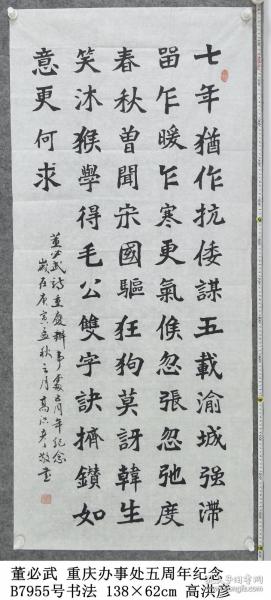 七年猶作抗倭謀五載渝城强滯
留乍暖乍寒更氣候忽張忽弛度
春秋曾聞宋國驅狂狗莫訝韓生
笑沐猴學得毛公雙字訣擠鑽如
意更何求
董必武詩重慶辦事處五周年紀念
歲在庚寅孟秋之月高洪彦敬書
董必武 重庆办事处五周年纪念
B7955号书法 138×62cm 高洪彦